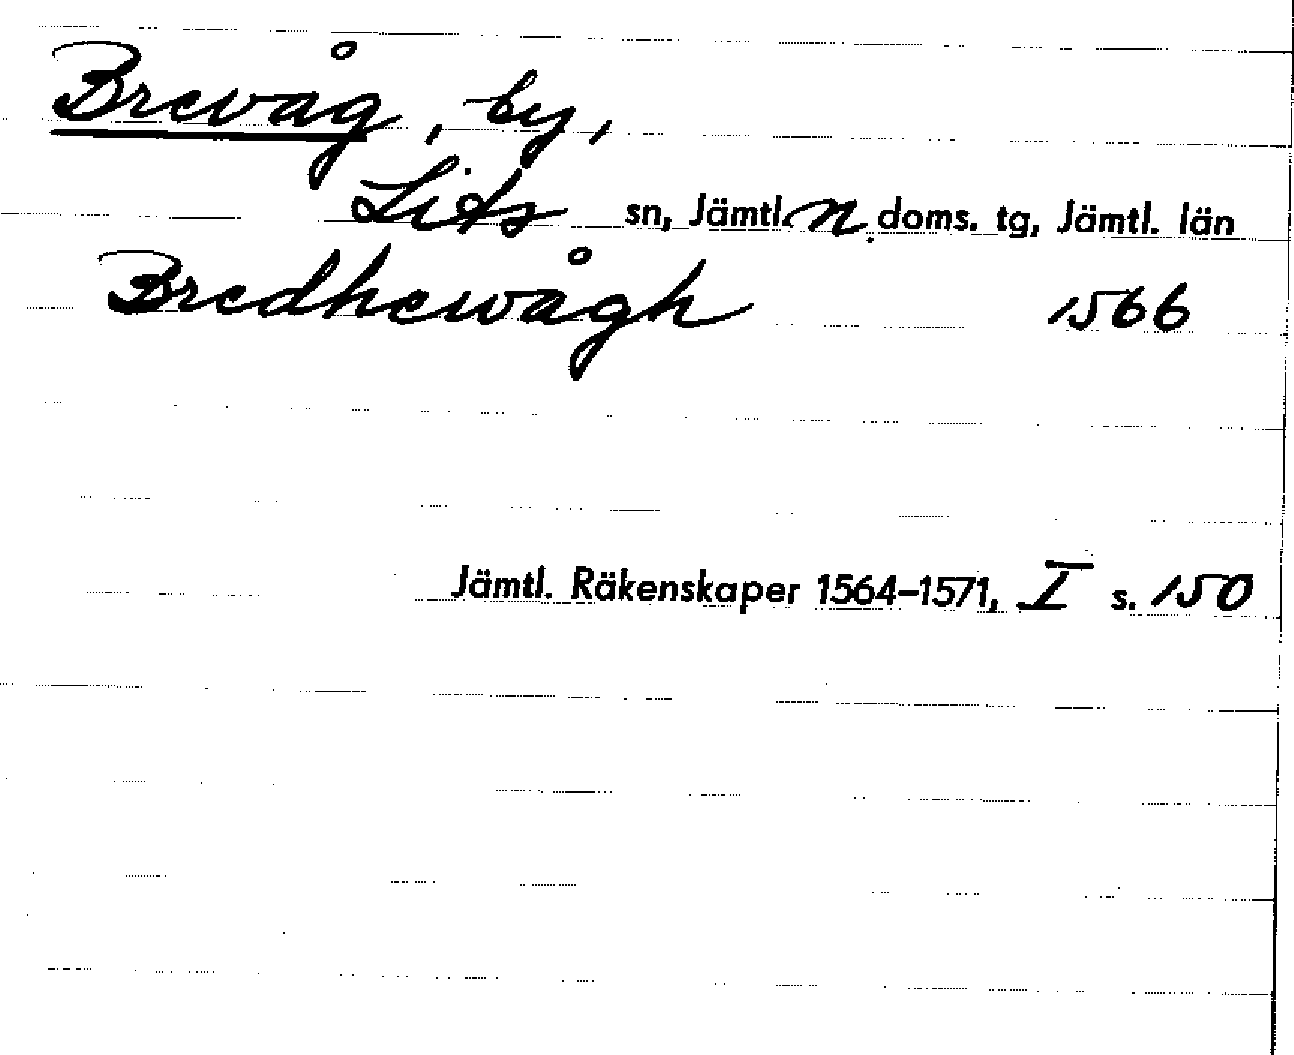 Brevåg, by,
Lits sn, Jämtl. n. doms. tg, Jämtl. län
Bredhewågh 1566
Jämtl. Räkenskaper 1564–1571, I s. 150